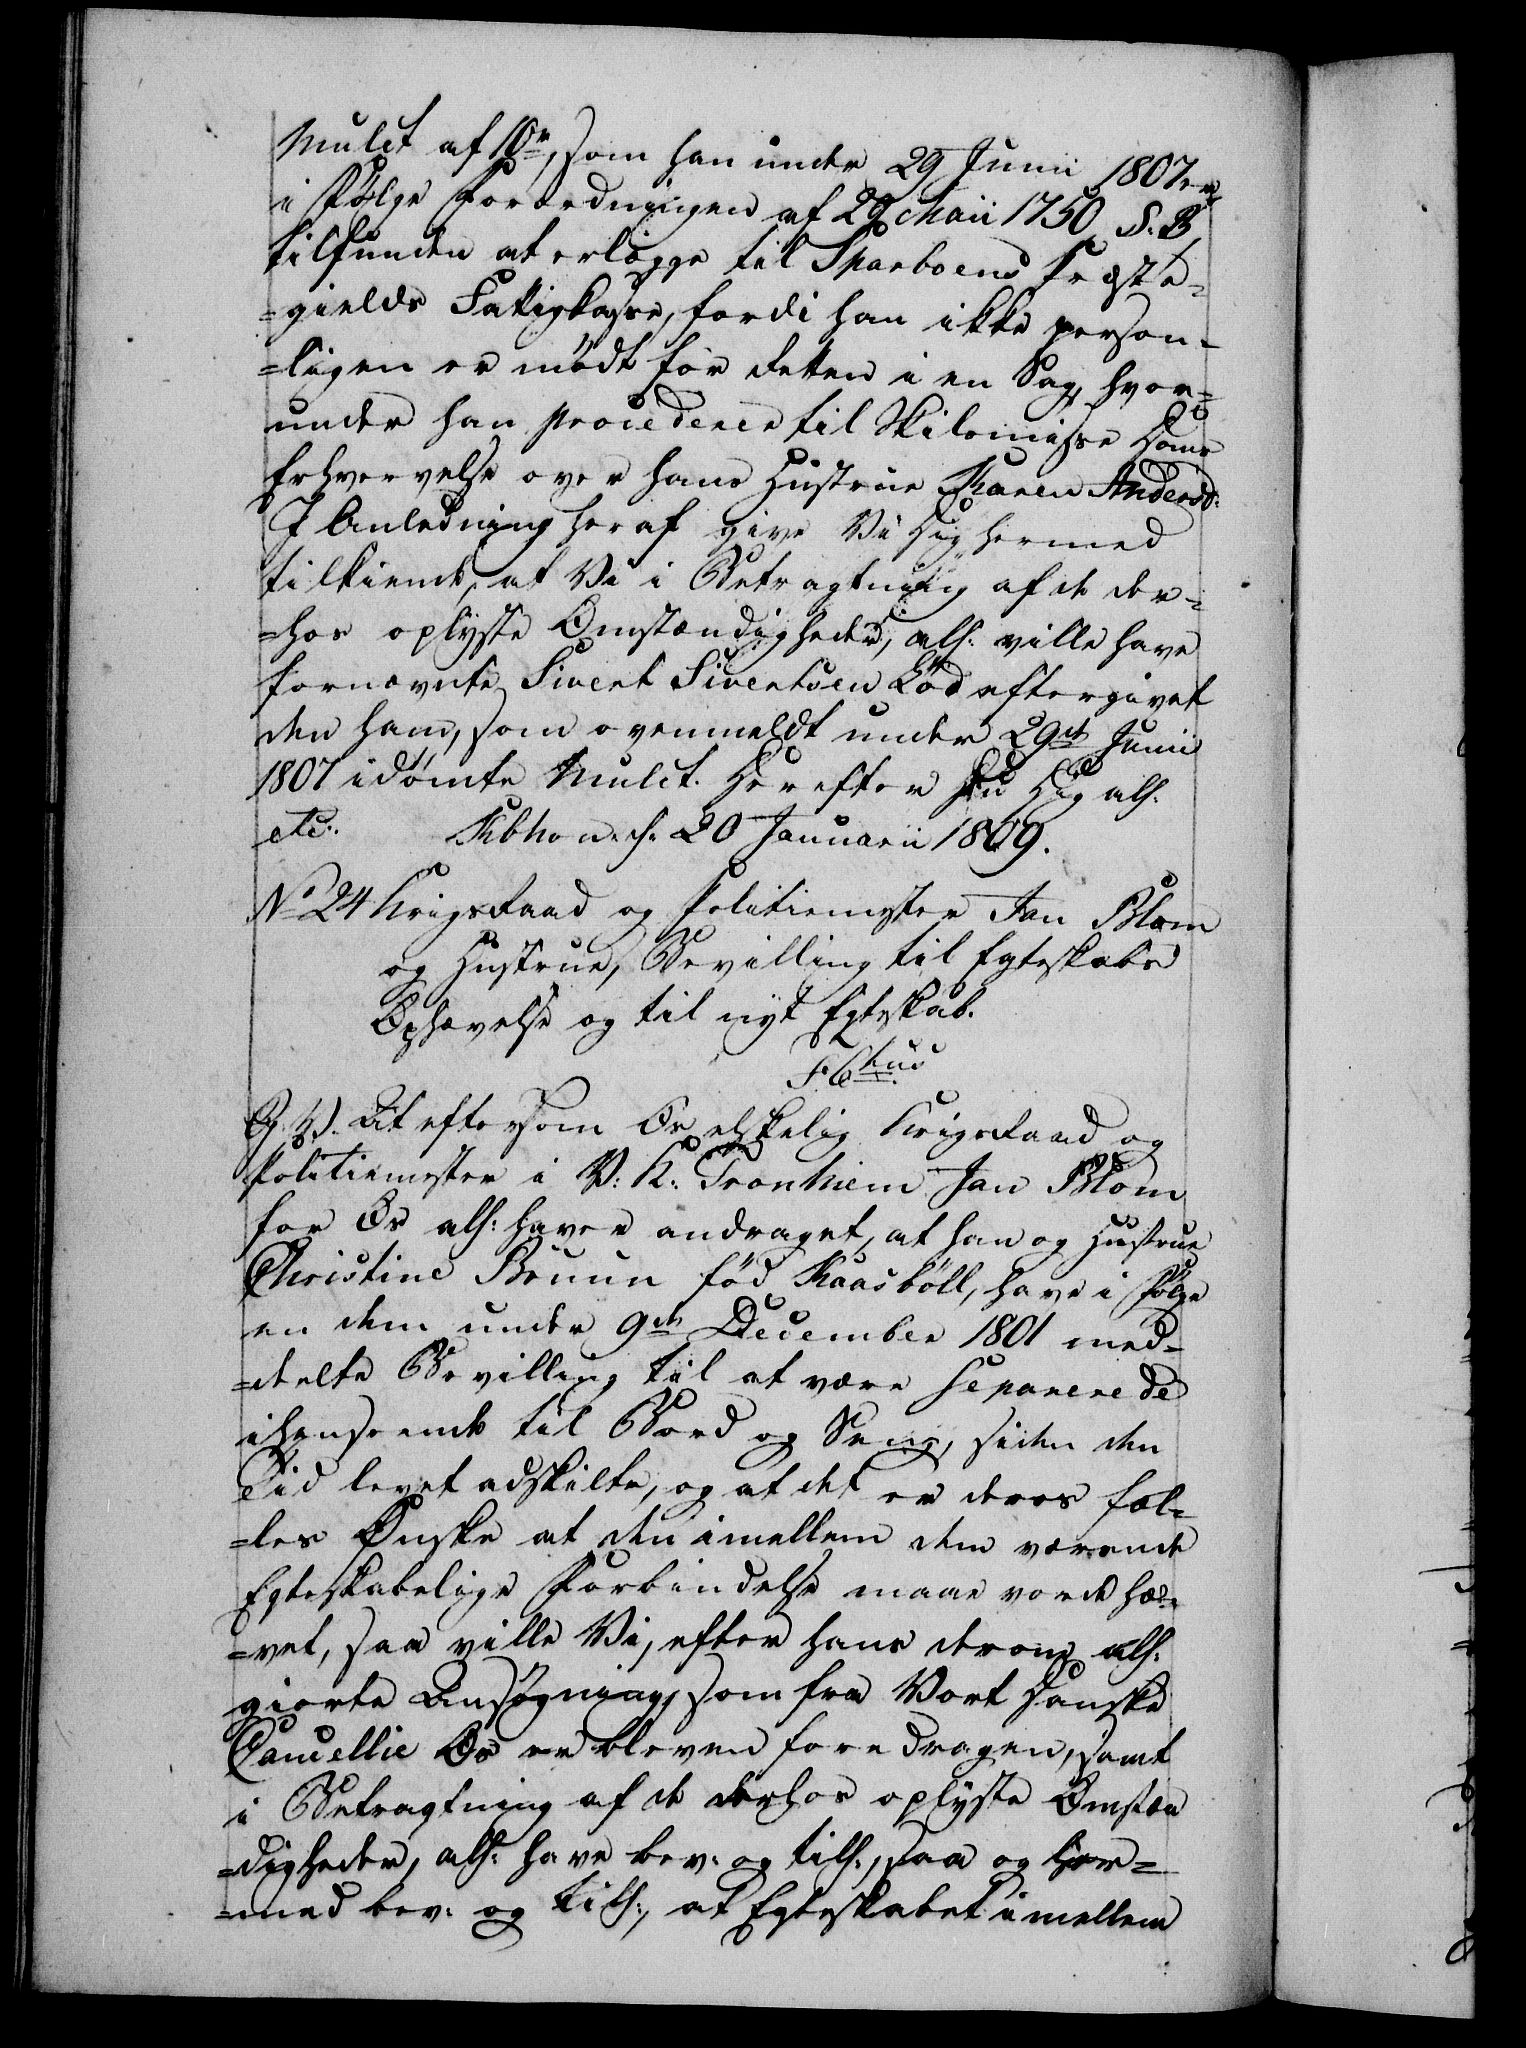 Mulct af 10 rd, som han under 29 Junii 1807 er
i Følge Forordningen af 29 Maii 1750 §. 3
tilfunden at erlægge til Sparboens Præste-
=gields Fattigkasse, fordi han ikke person-
=ligen er mødt for Retten i en Sag, hvor-
under han procederer til Skilsmisse Doms
Erhvervelse over hans Hustrue Karen Andersd:
I Anledning heraf give Vi Dig hermed
tilkiende, at Vi i Betragtning af de der-
=hos oplyste Omstændigheder, alh: ville have
fornævnte Sivert Sivertsen Lød eftergivet
den ham, som ovenmeldt under 29de Junii
1807 idømte Mulct. Derefter Du Dig alh:
etc: Kbhavn d: 20 Januarii 1809.
No 24 Krigsraad og Politiemester Jan Blom
og Hustrue, Bevilling til Egteskabs
Ophævelse og til nyt Egteskab.
F. 6tus
G. V. At eftersom Os elskelig Krigsraad og
Politiemester i V: K: Tronhiem Jan Blom
for Os alh: haver andraget, at han og Hustrue
Christine Bruun fød Kaasbøll, have i Følge
en dem under 9de December 1801 med-
=deelte Bevilling til at være separerede
i Henseende til Bord og Seng, siden den
Tid levet adskilte, og at det er deres fæl-
=les Ønske at den imellem dem værende
Egteskabelige Forbindelse maae vorde hæ-
=vet, saa ville Vi, efter hans derom alh:
giorte Ansøgning, som fra Vort Danske
Cancellie Os er bleven foredragen, samt
i Betragtning af de derhos oplyste Omstæn
=digheder, alh: have bev: og tilh:, saa og her-
=med bev: og tilh:, at Egteskabet imellem